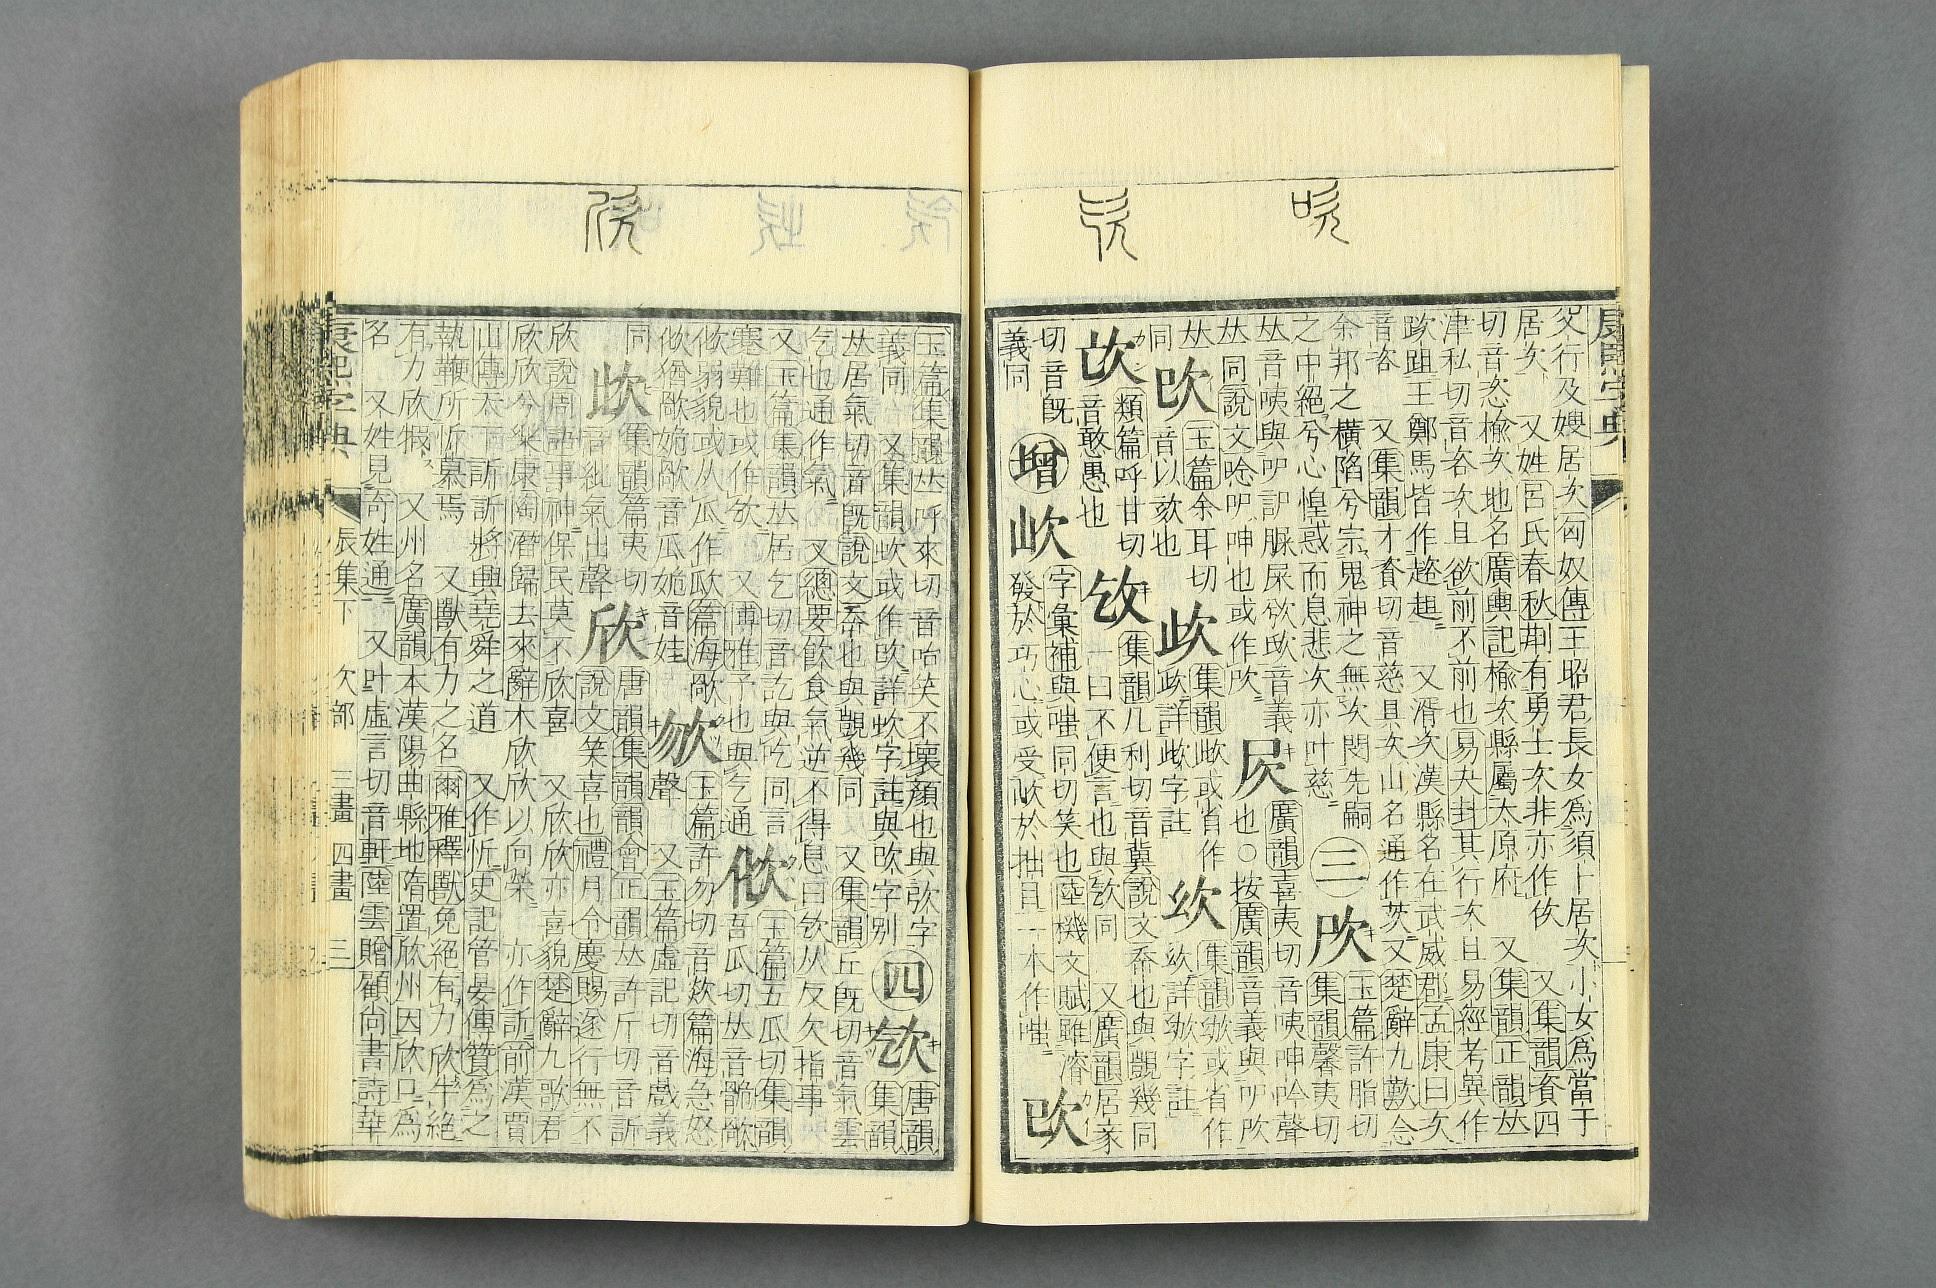 父行及嫂居次匈奴傳王昭君長女爲須卜居次小女爲當于
居次 又姓呂氏春秋荆有勇士次非亦作佽 又集韻資四
切音恣楡次地名廣輿記楡次縣屬太原府 又集韻正韻𠀤
津私切音咨次且欲前不前也易夬封其行次且易經考異作
跙王鄭馬皆作趑趄 又湑次漢縣名在武威郡孟康曰次
音咨 又集韻才資切音慈具次山名通作茨又楚辭九歎念
余邦之橫陷兮宗鬼神之無次閔先嗣
之中絕兮心惶惑而息悲次亦叶慈
三
玉篇許脂切
集韻馨夷切
𠀤音咦與吚脲屎音義
𠀤同說文唸吚呻也或作
廣韻喜夷切音咦呻吟聲
也○按廣韻音義與吚
𠀤
同
欥
玉篇余耳切
音以欬也
㰣
集韻或省作
詳字註
集韻或省作
詳字註
㰦
類篇呼甘切
音憨愚也
㰟
集韻几利切音冀說文㒫也與覬幾同
一曰不便言也與㰟同 又廣韻居家
切音旣
義同
增
㰞
字彙補與嗤同切笑也陸機文賦雖濬
發於巧心或受㰞於拙目一本作嗤
玉篇集韻𠀤呼來切音咍笑不壞顏也與字
義同 又集韻㰞或作詳㰞字註與字別
四
唐韻
集韻
𠀤居氣切音旣說文㒫也與覬幾同 又集韻丘旣切音氣雲
气也通作氣 又總要飮食氣逆不得息曰从反欠指事
又玉篇集韻𠀤居乞切音訖與吃同言
蹇難也或作 又博雅予也與乞通
玉篇五瓜切集韻
吾瓜切𠀤音骻
㐌弱貌或从瓜作㼌篇海
猶姽音瓜姽音娃
玉篇許勿切音欻篇海急怒
聲 又玉篇虛記切音戲義
同
集韻篇夷切
音紕氣出聲
欣
唐韻集韻韻會正韻𠀤許斤切音訢
說文笑喜也禮月令慶賜遂行無不
欣說周語事神保民莫不欣喜 又欣欣亦喜貌楚辭九歌君
欣欣兮樂康陶潛歸去來辭木欣欣以向榮 亦作訢前漢賈
山傳天下訢訢將興堯舜之道 又作忻史記管晏傳贊爲之
執鞭所忻慕焉 又獸有力之名爾雅釋獸兔絕有力欣牛絕
有力欣犌 又州名廣韻本漢陽曲縣地隋置欣州因欣口爲
名 又姓見奇姓通 又叶虛言切音軒陸雲贈顧尙書詩華
康熙字典
辰集下 欠部 三畫 四畫 三